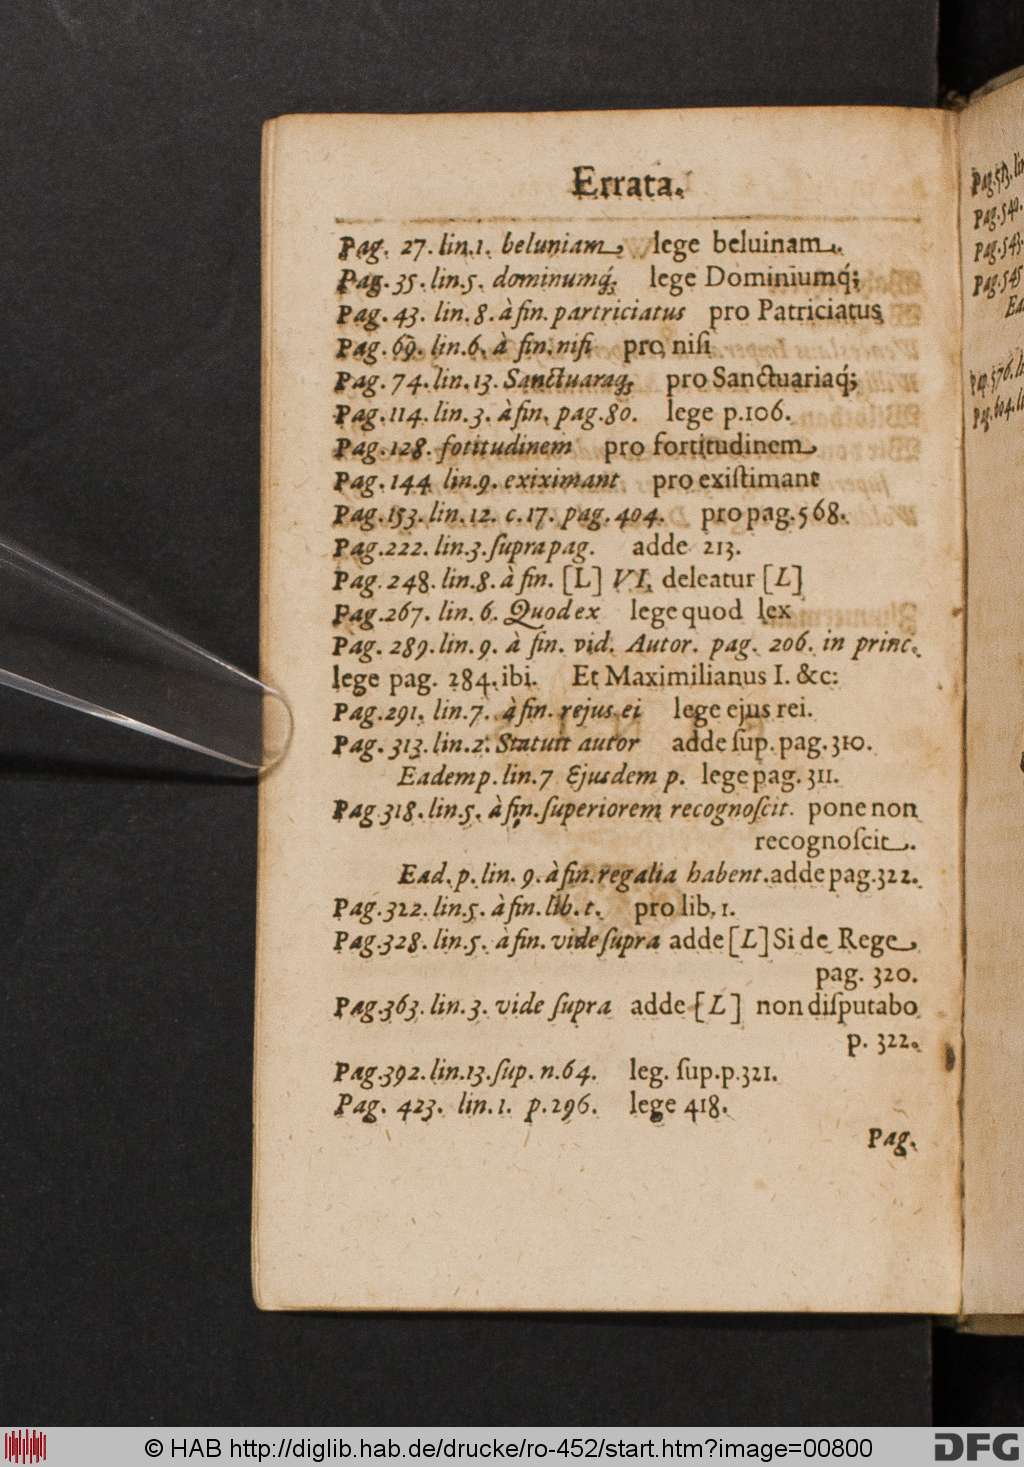 Errata.
Pag. 27. lin.1. beluniam, lege beluinam.
Pag. 35. lin.5. dominumq́; lege Dominiumq́;
Pag. 43. lin. 8. à fin. partriciatus pro Patriciatus
Pag. 69. lin.6. à fin. nifi pro niſi
Pag. 74. lin. 13. Sanctuaraq; pro Sanctuariaq́;
Pag. 114. lin. 3. à fin. pag. 80. lege p.106.
Pag. 128. fotitudinem pro fortitudinem
Pag. 144 lin.9. exiximant pro exiſtimant
Pag. 153. lin. 12. c. 17. pag. 404. pro pag. 568.
Pag. 222. lin. 3. ſupra pag. adde 213.
Pag. 248. lin. 8. à fin. [L] VI. deleatur [L]
Pag. 267. lin. 6. Quodex lege quod lex
Pag. 289. lin. 9. à fin. vid. Autor. pag. 206. in princ.
lege pag. 284. ibi. Et Maximilianus I. &c:
Pag. 291. lin. 7. à fin. rejus ei lege ejus rei.
Pag. 313. lin. 2. Statuit autor adde ſup. pag. 310.
Eadem p. lin. 7 Ejusdem p. lege pag. 311.
Pag. 318. lin. 5. à fin. ſuperiorem recognoſcit. pone non
recognoſcit.
Ead. p. lin. 9. à fin. regalia habent. adde pag. 322.
Pag. 322. lin. 5. à fin. lib. t. pro lib. 1.
Pag. 328. lin. 5. à fin. vide ſupra adde [L] Si de Rege,
pag. 320.
Pag. 363. lin. 3. vide ſupra adde [L] non diſputabo
p. 322.
Pag. 392. lin. 13. ſup. n. 64. leg. ſup. p. 321.
Pag. 423. lin. 1. p. 296. lege 418.
Pag.
Pag. 513. lin
Pag. 540.
Pag. 543.
Pag. 545
Ea
Pag. 576. l
Pag. 604. l
© HAB http://diglib.hab.de/drucke/ro-452/start.htm?image=00800
DFG